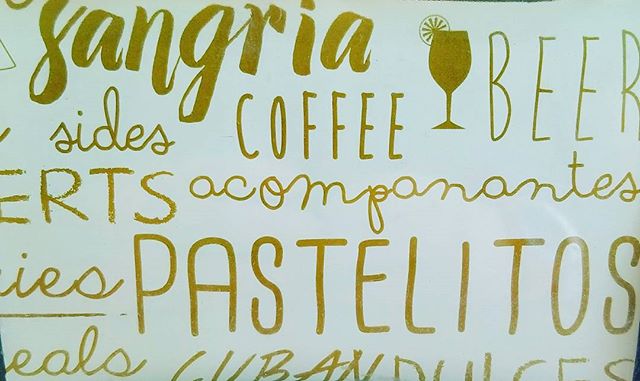 sangria
sides COFFEE BEER
ERTS acompanantes
ies PASTELITOS
eals CUBAN DULCES